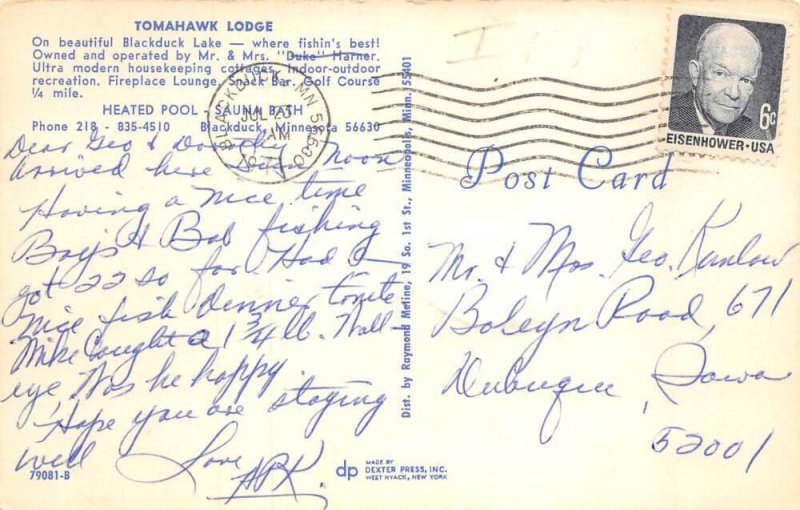 TOMAHAWK LODGE
On beautiful Blackduck Lake — where fishin's best!
Owned and operated by Mr. & Mrs. "Duke" Harner.
Ultra modern housekeeping cottages. Indoor-outdoor
recreation. Fireplace Lounge. Snack Bar. Golf Course
¼ mile.
HEATED POOL - SAUNA BATH
Phone 218 - 835-4510 Blackduck, Minnesota 56630
Dear Geo & Dorothy
arrived here Noon
Having a nice time
Boys & Bob fishing
got 22 so far. Had a
nice fish dinner tonite
Mike Caught a 1 3/4 lb. Wall-
eye, Was he happy.
Hope you are staying
well
Love
79081-B
dp
MADE BY
DEXTER PRESS, INC.
WEST NYACK, NEW YORK
Dist. by Raymond Metine, 19 So. 1st St., Minneapolis, Minn. 55401
BLACKDUCK MN 56630
JUL 23
AM
6c
EISENHOWER·USA
Post Card
Mr. & Mrs. Geo.
Boleyn Road, 671
Dubuque, Iowa
52001